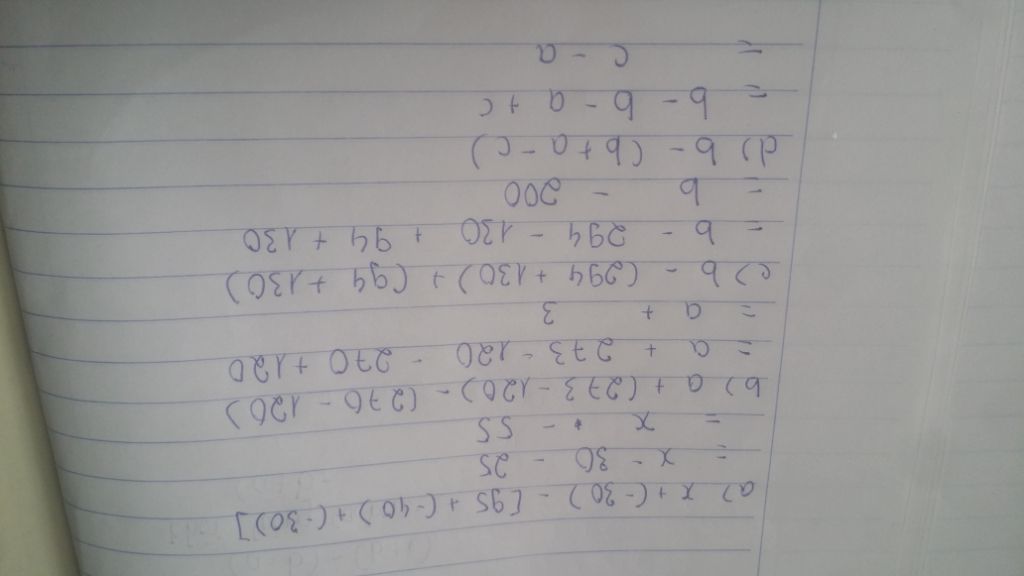 a) x + (-30) - [95 + (-40) + (-30)]
= x - 30 - 25
= x - 55
b) a + (273 - 120) - (270 - 120)
= a + 273 - 120 - 270 + 120
= a + 3
c) b - (294 + 130) + (94 + 130)
= b - 294 - 130 + 94 + 130
= b - 200
d) b - (b + a - c)
= b - b - a + c
= c - a